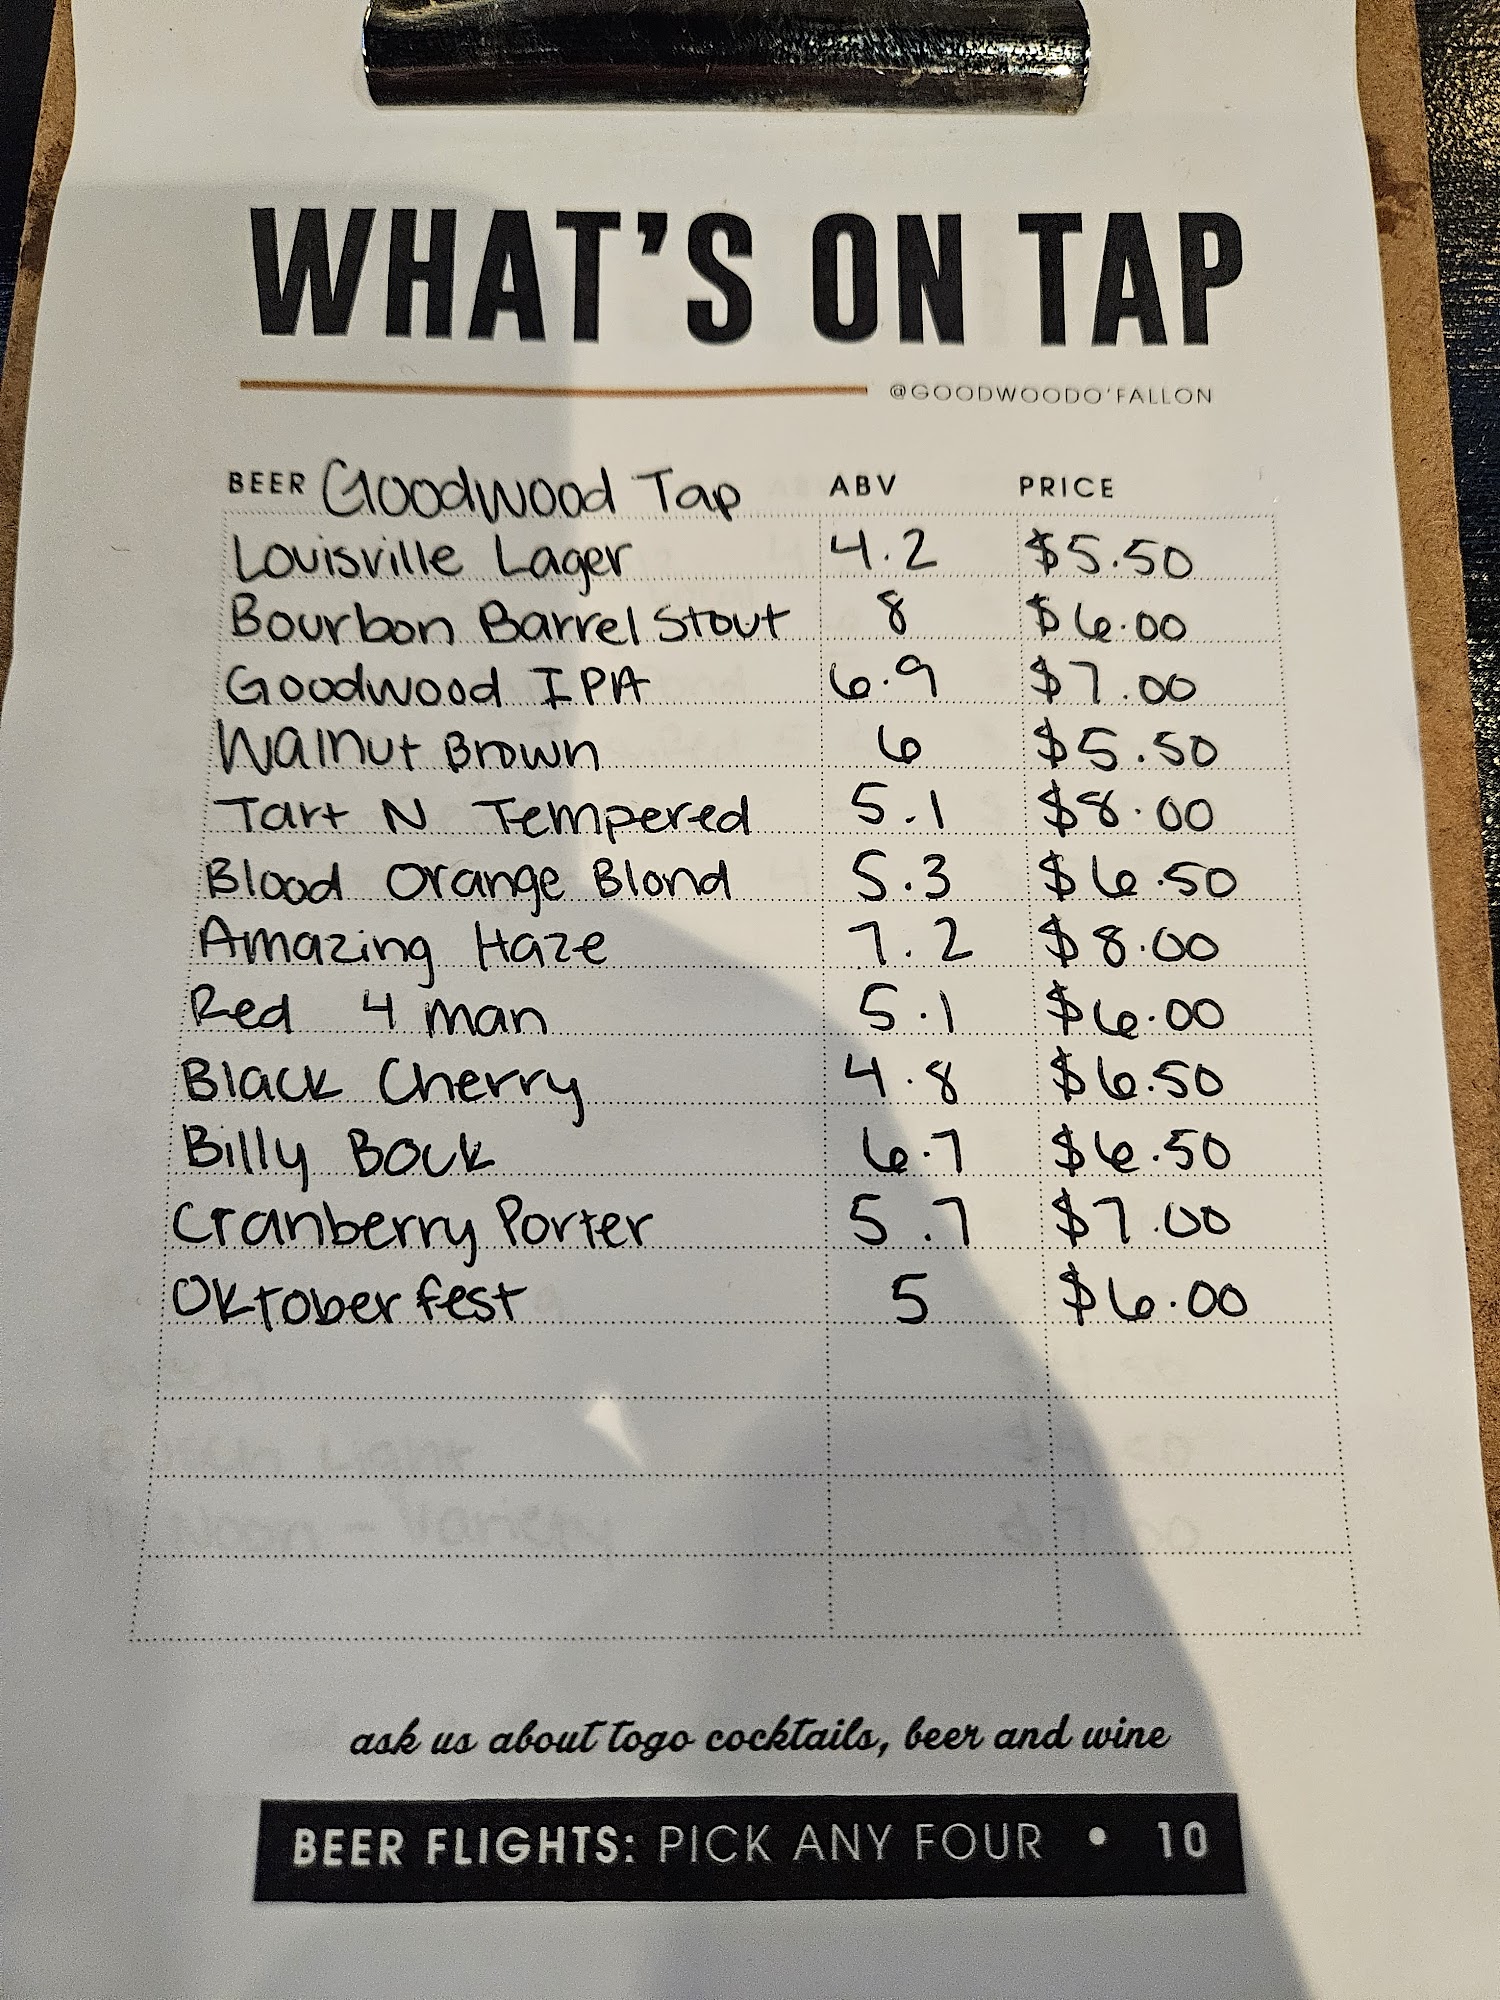 WHAT'S ON TAP
@GOODWOODO'FALLON
BEER Goodwood Tap ABV PRICE
Louisville Lager 4.2 $5.50
Bourbon Barrel Stout 8 $6.00
Goodwood IPA 6.9 $7.00
Walnut Brown 6 $5.50
Tart N Tempered 5.1 $8.00
Blood Orange Blond 5.3 $6.50
Amazing Haze 7.2 $8.00
Red 4 man 5.1 $6.00
Black Cherry 4.8 $6.50
Billy Bock 6.7 $6.50
Cranberry Porter 5.7 $7.00
Oktoberfest 5 $6.00
ask us about togo cocktails, beer and wine
BEER FLIGHTS: PICK ANY FOUR • 10